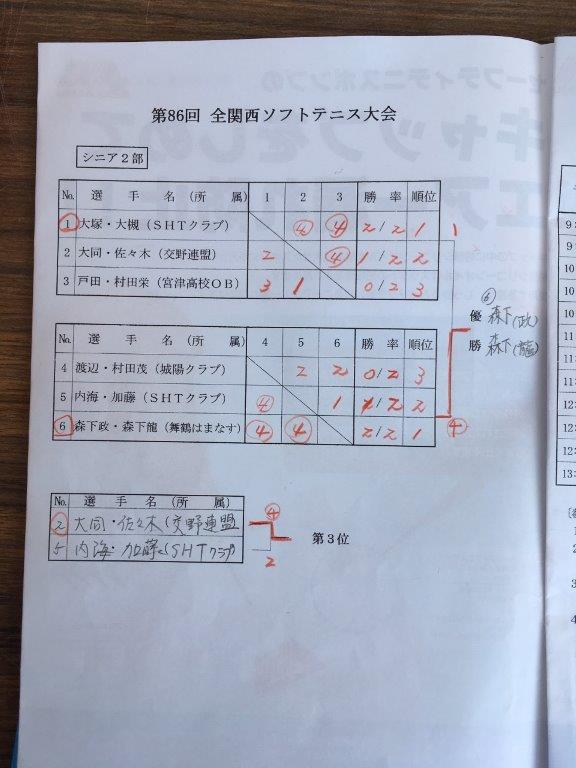 第86回 全関西ソフトテニス大会
シニア2部
No. 選手名(所属) 1 2 3 勝率 順位
1 大塚・大槻(SHTクラブ) ④ ④ 2/2 1
2 大同・佐々木(交野連盟) 2 ④ 1/2 2
3 戸田・村田栄(宮津高校OB) 3 1 0/2 3
1
⑥
優 森下(政)
勝 森下(龍)
No. 選手名(所属) 4 5 6 勝率 順位
4 渡辺・村田茂(城陽クラブ) 2 2 0/2 3
5 内海・加藤(SHTクラブ) ④ 1 1/2 2
6 森下政・森下龍(舞鶴はまなす) ④ ④ 2/2 1
④
No. 選手名(所属)
2 大同・佐々木(交野連盟 ④
5 内海・加藤(SHTクラブ) 2
第3位
9:
9:
10
10
10
11
11
12:
12:
12:
13: